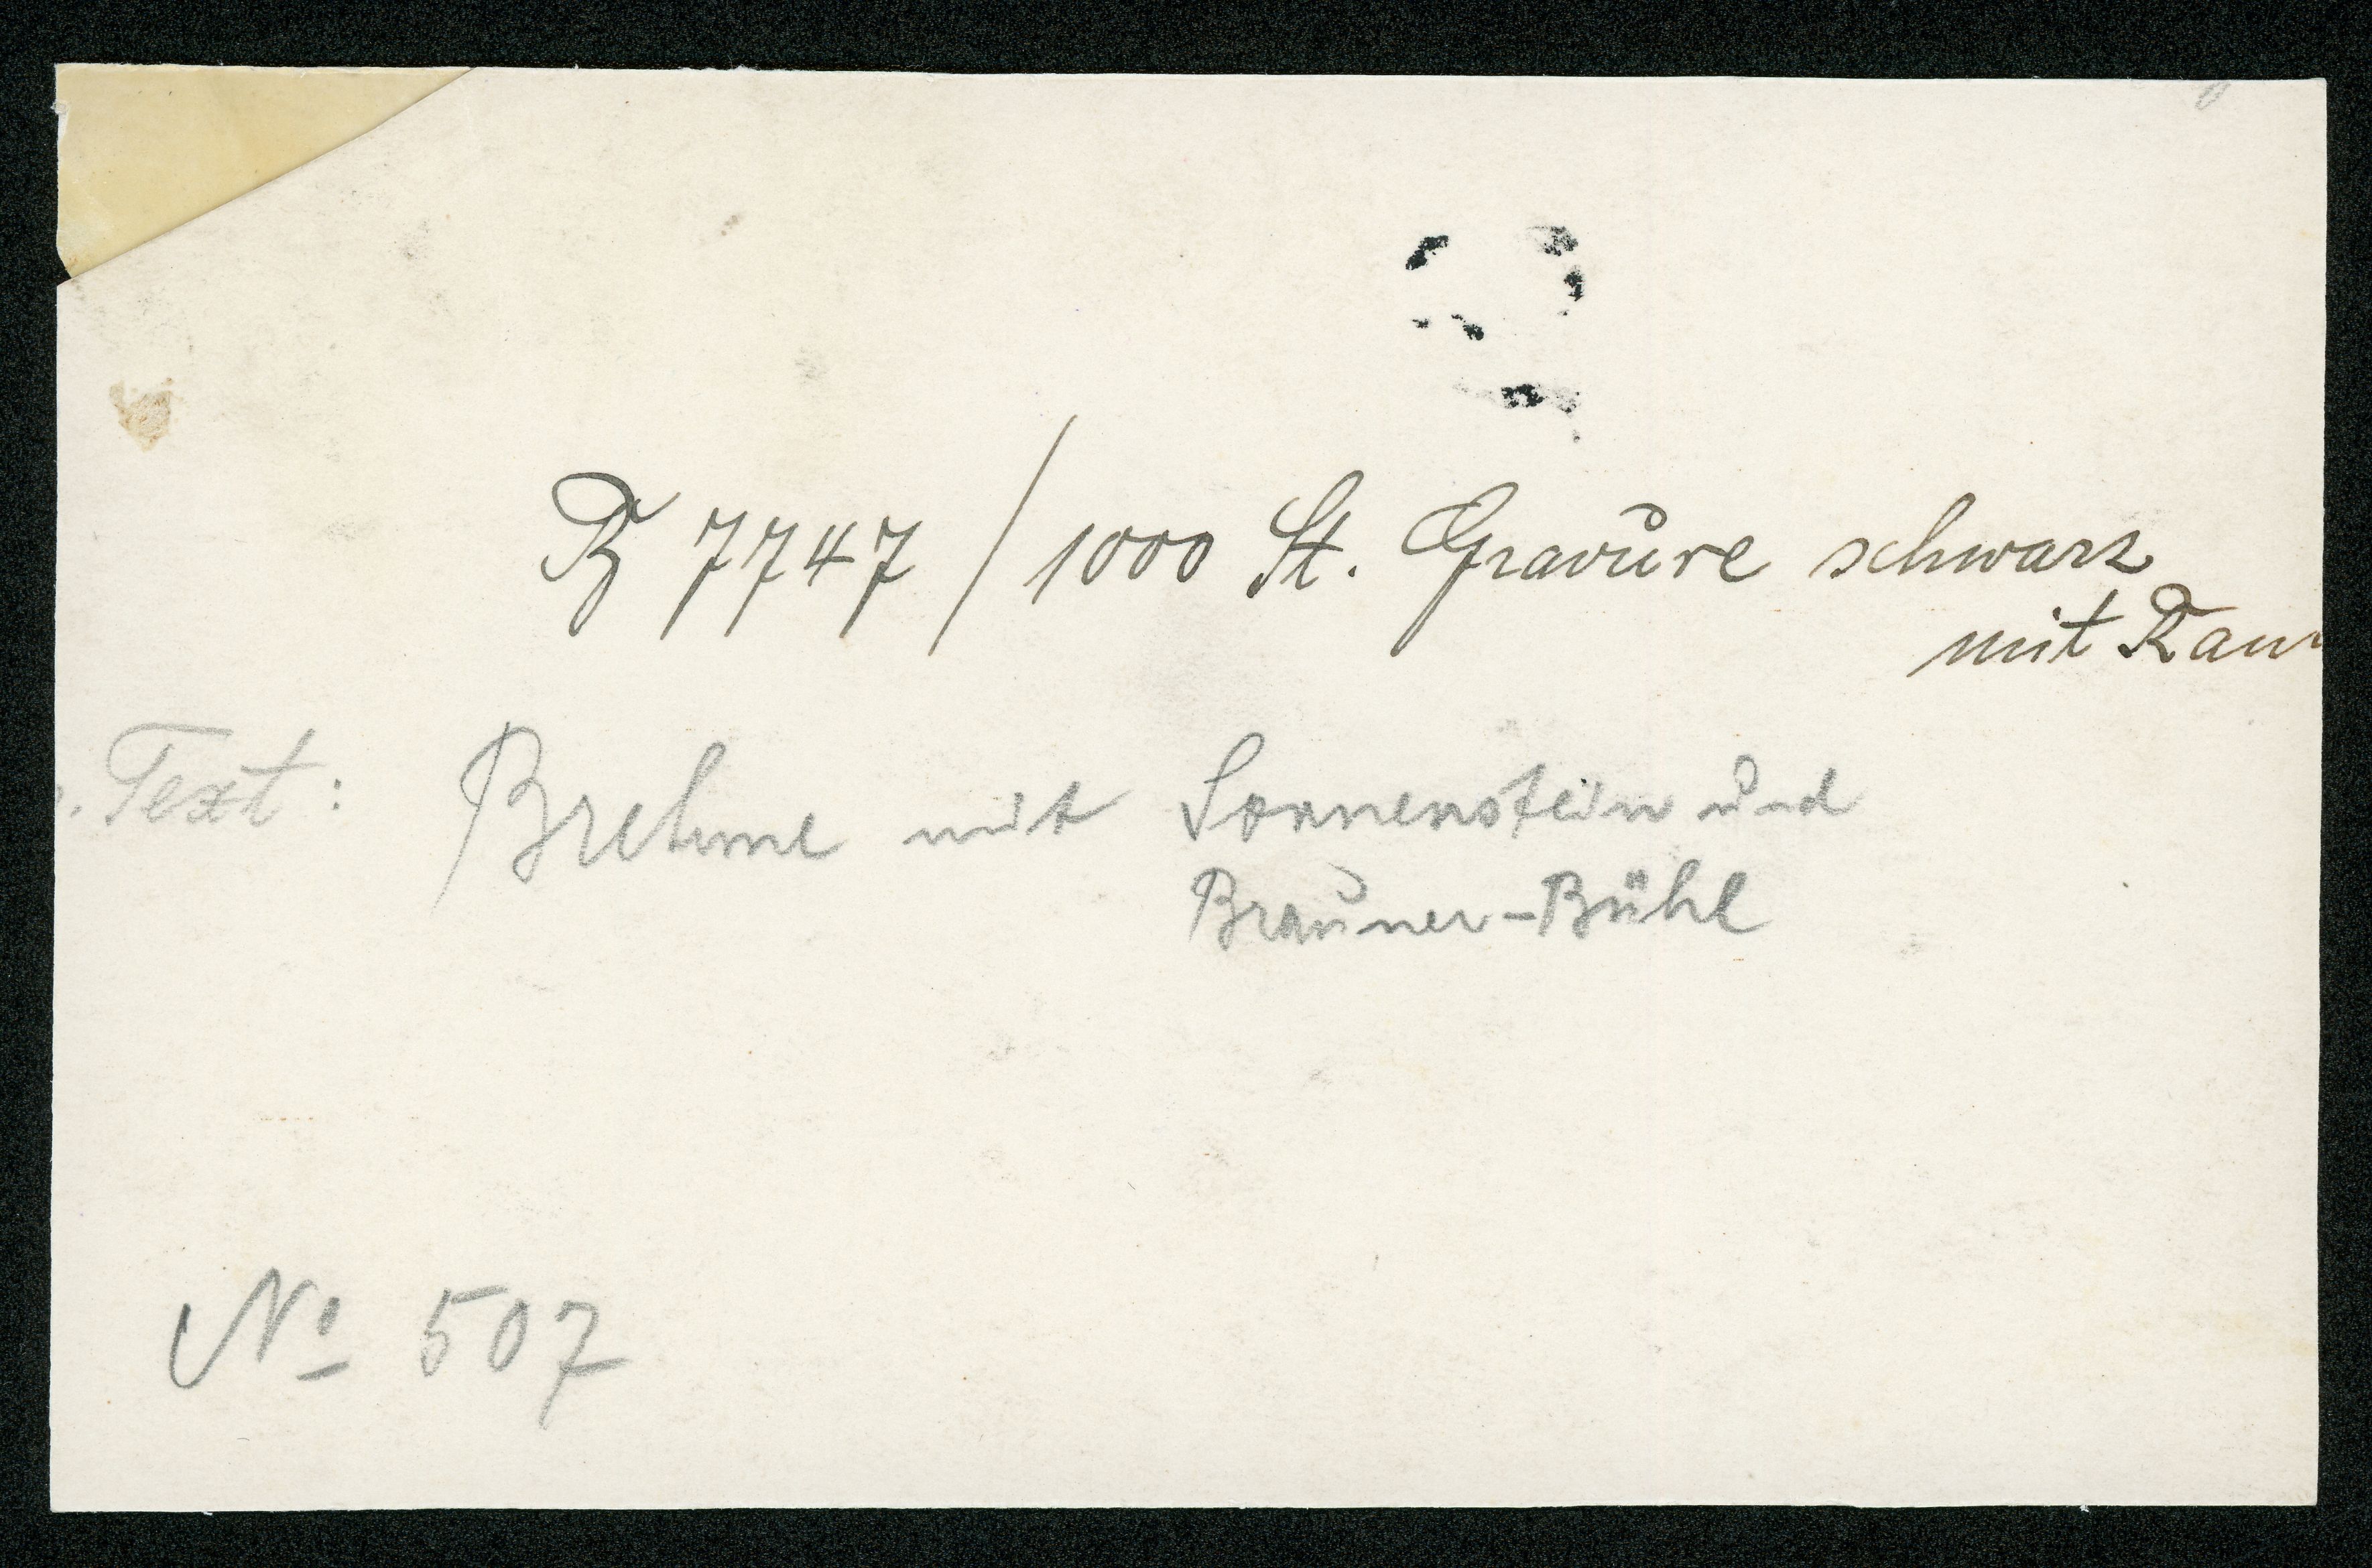 7747 / 1000 St. Gravure schwarz
mit
Text: Brehme mit Sonnenstein und
Brauner-Bühl
No 507